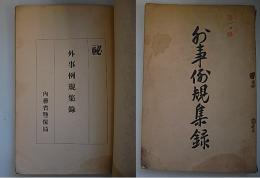 秘
外事例規集錄
内務省警保局
外事例規集録